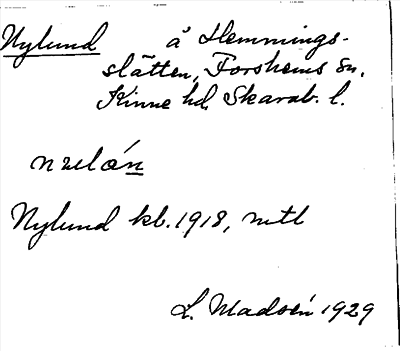 Nylund å Hemmings-
slätten, Forshems sn,
Kinne hd, Skarab. l.
Nylund kb. 1918, mtl
L. Madsén 1929